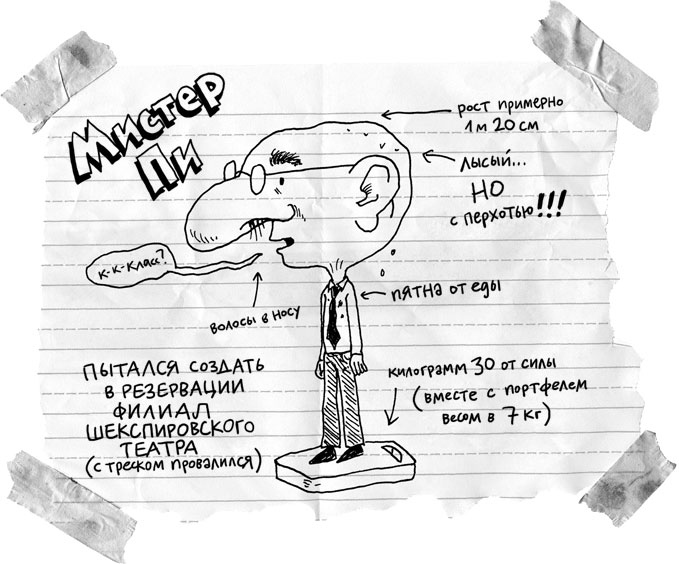 Мистер
Пи
рост примерно
1 м 20 см
лысый...
НО
с перхотью!!!
К-К-Класс?
волосы в носу
пятна от еды
ПЫТАЛСЯ СОЗДАТЬ
В РЕЗЕРВАЦИИ
ФИЛИАЛ
ШЕКСПИРОВСКОГО
ТЕАТРА
(с треском провалился)
килограмм 30 от силы
(вместе с портфелем
весом в 7 кг)